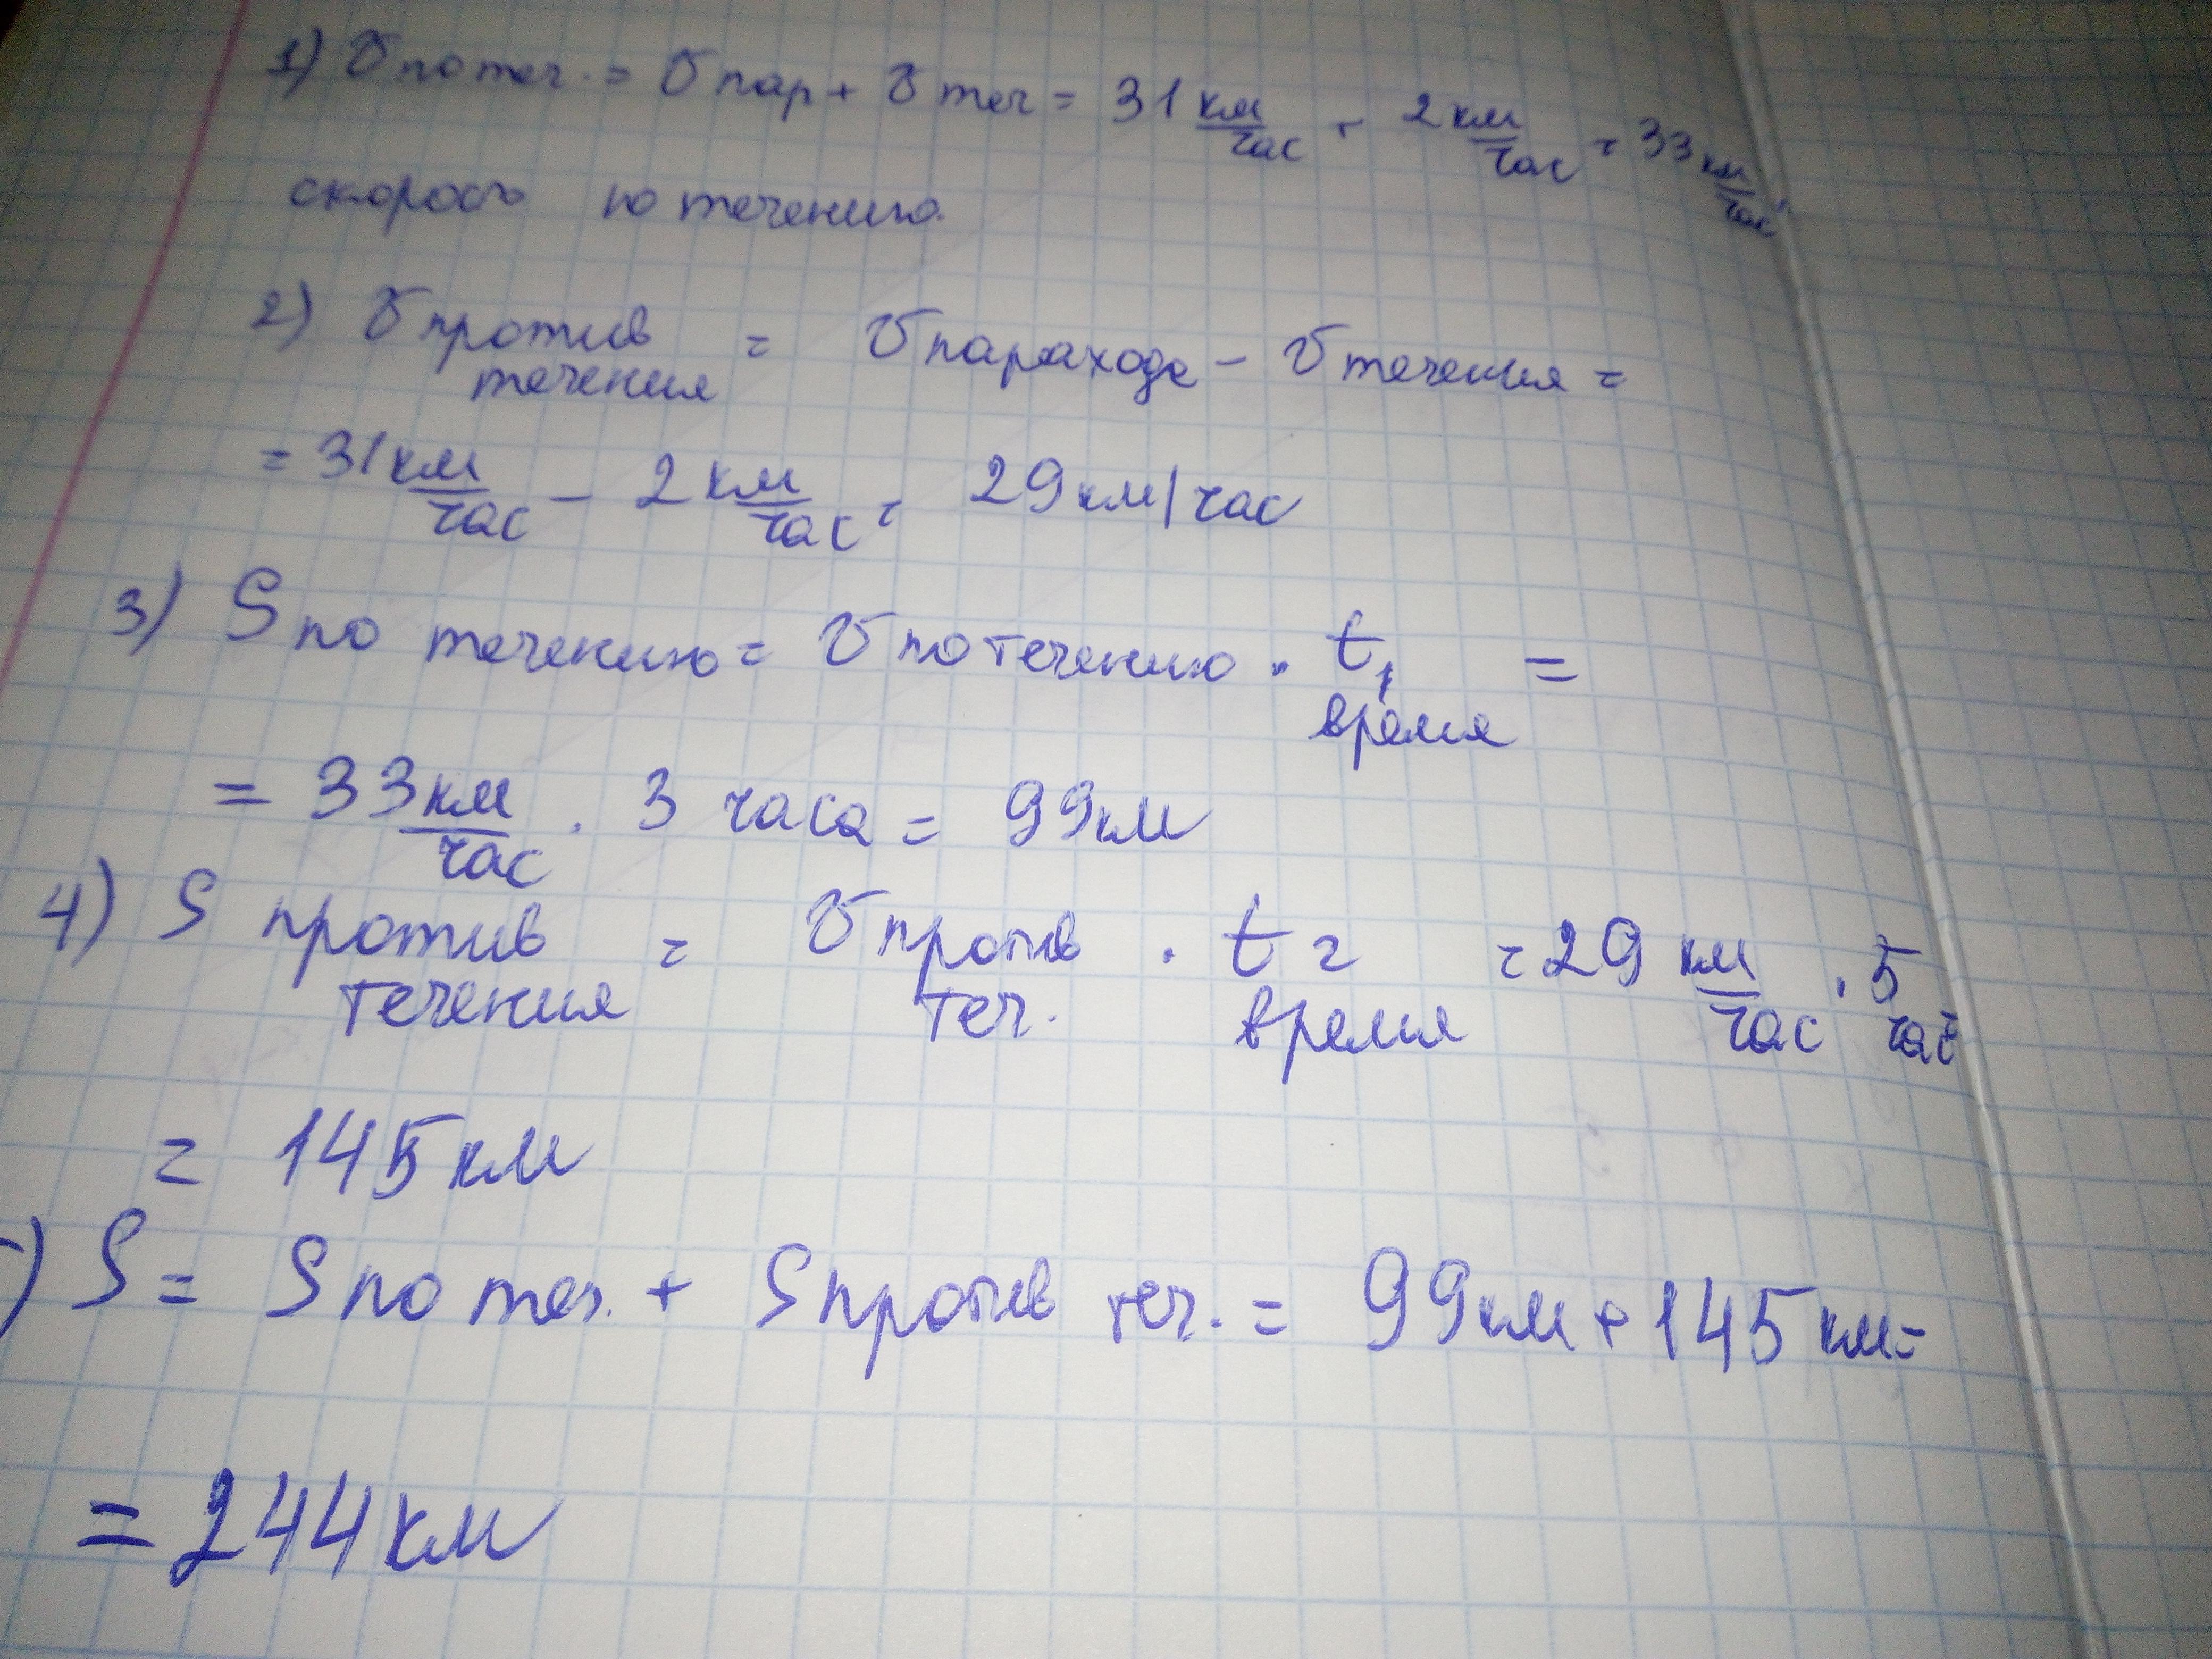 1) υ по теч. = υ пар + υ теч = 31 км/час + 2 км/час = 33 км/час,
скорость по течению.
2) υ против течения = υ парахода - υ течения =
= 31 км/час - 2 км/час = 29 км/час
3) S по течению = υ по течению · t₁ время =
= 33 км/час · 3 часа = 99 км
4) S против течения = υ против теч. · t₂ время = 29 км/час · 5 час
= 145 км
) S = S по теч. + S против теч. = 99 км + 145 км =
= 244 км